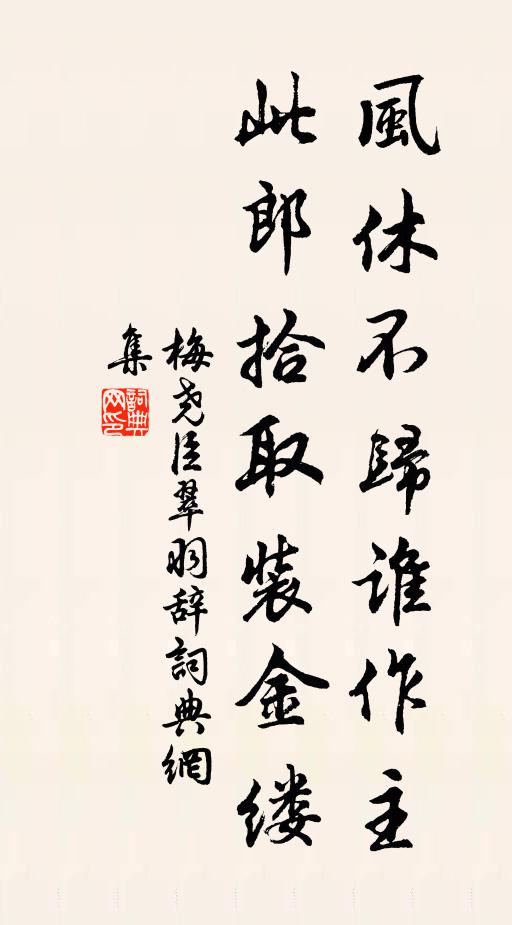 風休不歸誰作主
此郎拾取裝金缕
梅尧臣翠羽辞詞典網
集
詞典網印